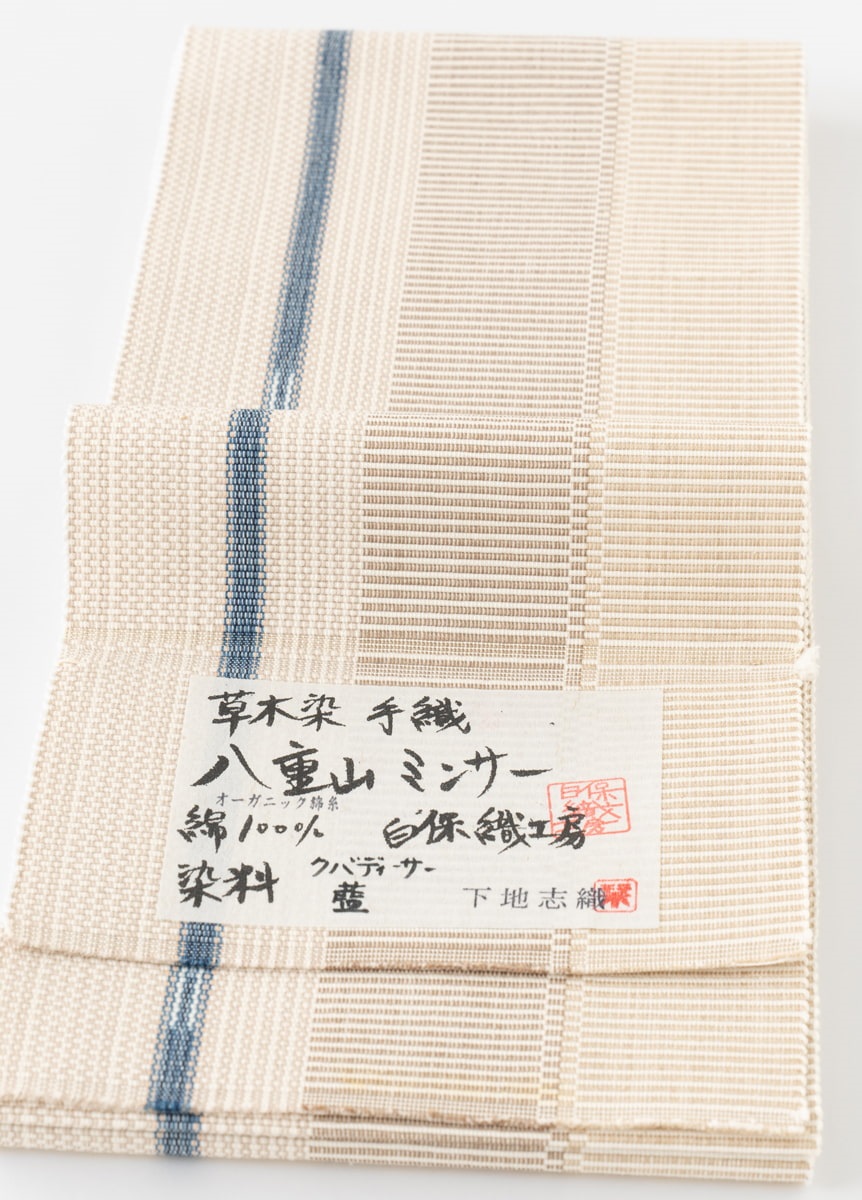 草木染 手織
八重山 ミンサー
オーガニック綿糸
綿100% 白保織工房
染料 クバディーサー
藍
下地志織